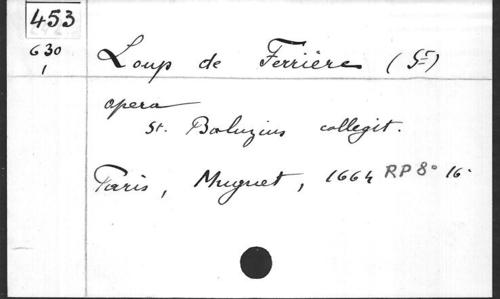 453
630
1
Loup de Ferrière (St)
opera
St. Baluzius collegit.
Paris, Muguet, 1664 RP 8° 16